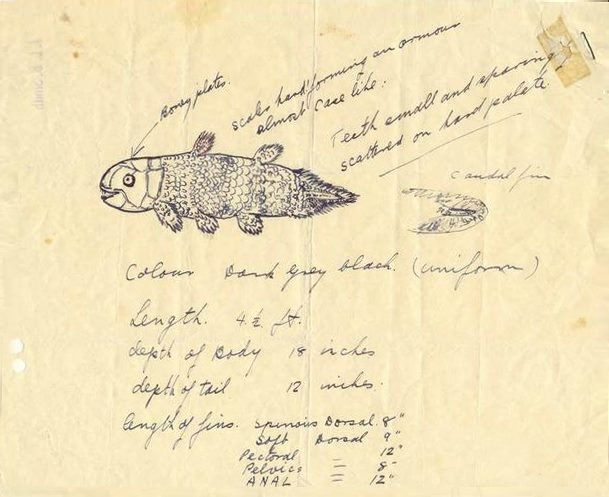 Boney plates.
scales hard forming an armour
almost case like.
Teeth small and sparsing
scattered on hard palate.
Caudal fin
Colour Dark Grey black. (uniform)
Length. 4.½. ft.
depth of Body 18 inches
depth of tail 12 inches.
length of fins. Spinous Dorsal. 8"
Soft Dorsal 9"
Pectoral 12"
Pelvics = 8"
ANAL = 12"